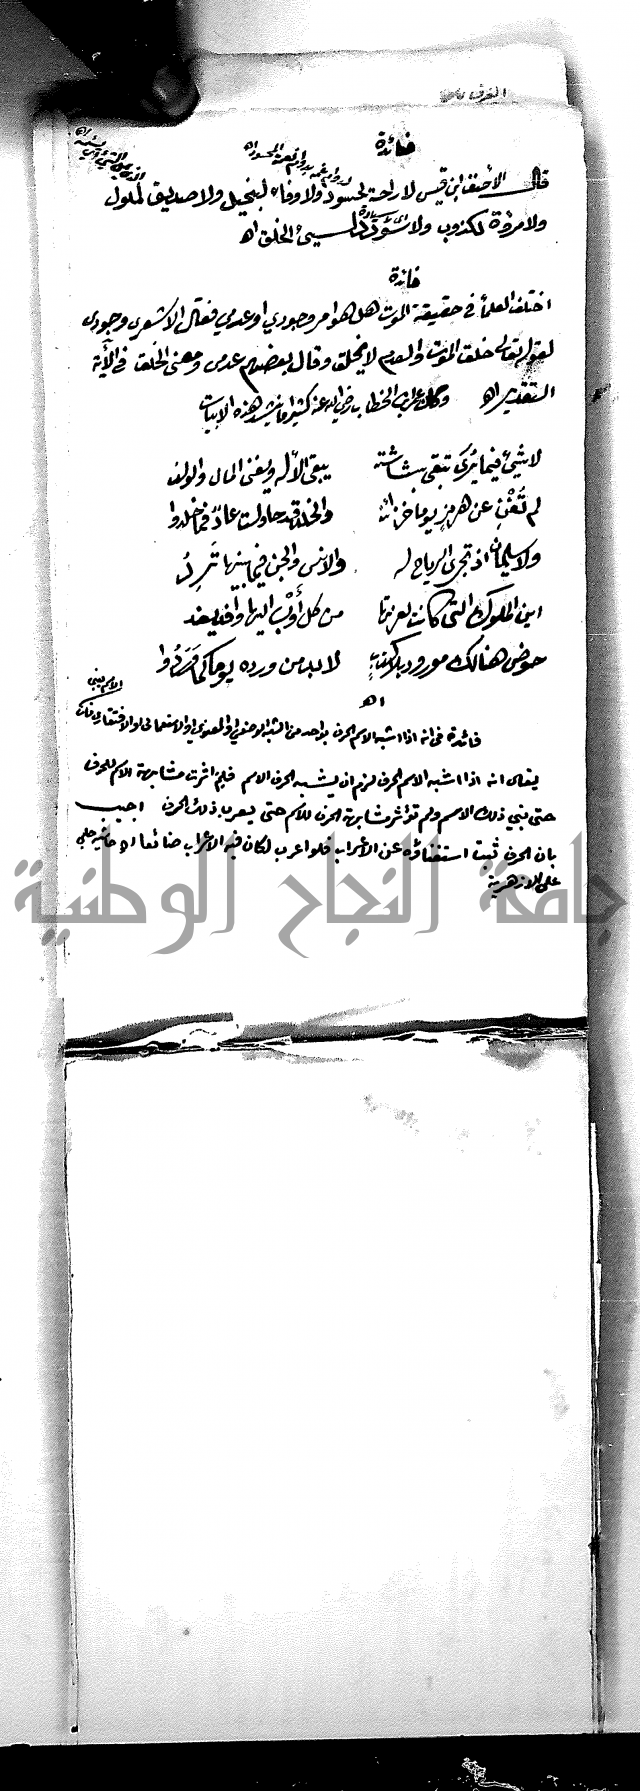 فائدة
قال الأحنف ابن قيس لا راحة لحسود ولا وفاء لبخيل ولا صديق لملول
ولا مروة لكذوب ولا سؤدد لسيئ الخلق اه
فائدة
اختلف العلماء في حقيقة الموت هل هو امر وجودي او عدمي فقال الاشعري وجودي
لقوله تعالى خلق الموت والعدم لا يخلق وقال بعضهم عدمي ومعنى الخلق في الآية
التقدير اه وكان عمر بن الخطاب رضي الله عنه كثيرا ما ينشد هذه الابيات
لا شيئ فيما يرى تبقى بشاشته يبقى الاله ويفنى المال والولد
لم تُغْنِ عن هرمز يوما خزائنه والخلد قد حاولت عاد فما خلدوا
ولا سليمان اذ تجري الرياح له والانس والجن فيما بينها تَرِدُ
اين الملوك التي كانت لعزتها من كل أَوْب اليها وافد يفد
حوض هنالك مورود بلا كذب لا بد من ورده يوما كما وَرَدُوا
اه
فائدة في انه اذا اشبه الاسم الحرف بواحد من الشبه الوضعي او المعنوي او الاستعمالي او الافتقاري
يقال انه اذا اشبه الاسم الحرف لزم ان يشبه الحرف الاسم فلم اثرت مشابهة الاسم للحرف
حتى بني ذلك الاسم ولم تؤثر مشابهة الحرف للاسم حتى يعرب ذلك الحرف اجيب
بان الحرف ثبت استغناؤه عن الأعراب فلو اعرب لكان فيه الاعراب ضائعا اه حاشية حلبي
على الازهرية
جامعة النجاح الوطنية